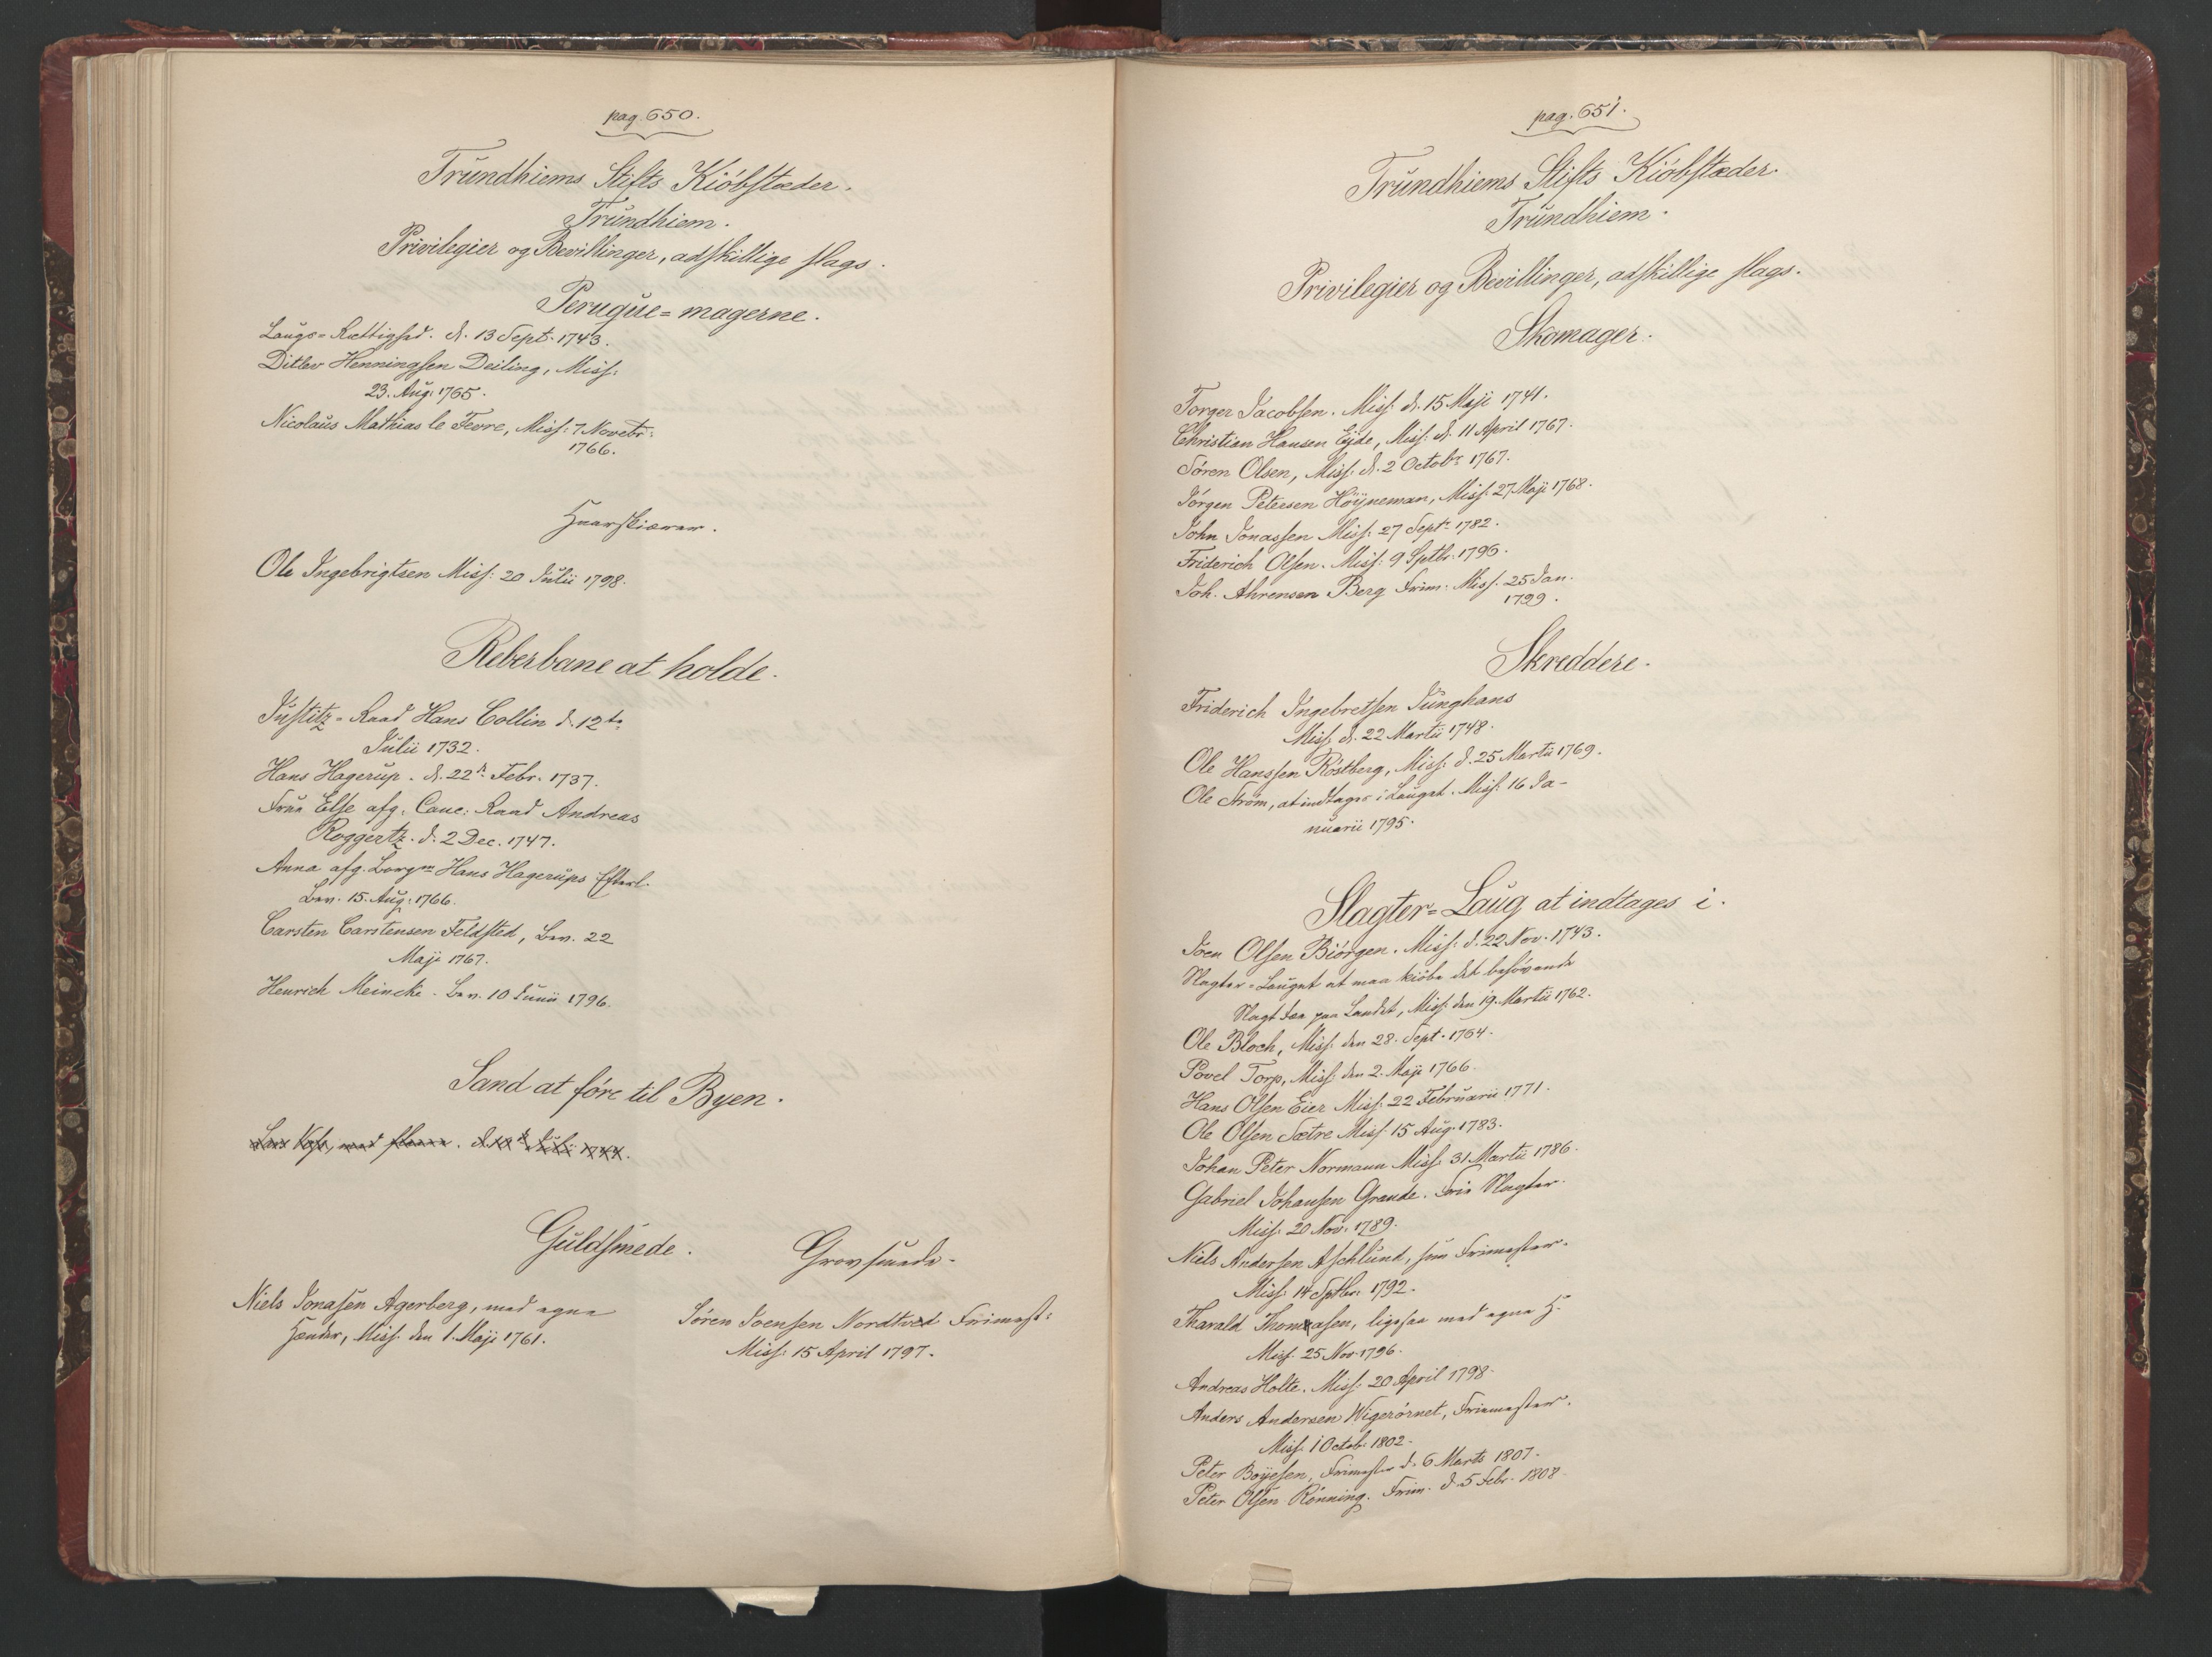 pag. 650.
Trundhiems Stifts Kiöbstæder.
Trundhiem.
Privilegier og Bevillinger, adskillige slags.
Peruque=magerne.
Laugs=Rettighed. d. 13 Sept. 1743.
Ditlev Henningsen Deiling, Miss:
23. Aug: 1765.
Nicolaus Mathias le Fevre, Miss: 7 Novebr:
1766.
Huarskiærer.
Ole Ingebrigtsen Miss: 20 Julii 1798.
Reberbane at holde.
Justitz=Raad Hans Collin d. 12te
Julii 1732.
Hans Hagerup. d. 22de Febr. 1737.
Frue Else afg. Canc: Raad Andreas
Roggertz. d: 2 Dec. 1747.
Anna afg. Borgm Hans Hagerups Efterl.
Bev. 15. Aug: 1766.
Carsten Carstensen Feldsted, Bev. 22
Maji 1767.
Henrich Meincke. Bev. 10 Junii 1796.
Sand at före til Byen.
med d. Julii 1744.
Guldsmede.
Grovsmede.
Niels Jonasen Agerberg, med egne
Hænder, Miss. den 1. Maji 1761.
Sören Joensen Nordtved Frimest:
Miss: 15 April 1797.
pag. 651.
Trundhiems Stifts Kiöbstæder.
Trundhiem.
Privilegier og Bevillinger, adskillige slags.
Skomager.
Torger Jacobsen. Miss: d. 15 Maji 1741.
Christian Hansen Eyde, Miss: d. 11 April 1767.
Sören Olsen, Miss: d. 2 Octobr 1767.
Jörgen Petersen Höyneman, Miss: 27 Maji 1768.
John Jonassen Miss: 27 Septr 1782.
Friderich Olsen. Miss: 9 Sptbr: 1796.
Joh. Ahrensen Berg Frim: Miss. 25 Jan.
1799.
Skreddere.
Friderich Ingebretsen Junghans
Miss. d. 22 Martii 1748.
Ole Hanssen Röstberg, Miss: d. 25 Martii 1769.
Ole Ström, at indtages i Lauget. Miss: 16 Ja-
nuarii 1795.
Slagter=Laug at indtages i.
Joen Olsen Biörgen. Miss: d. 22 Nov. 1743.
Slagter=Lauget at maa kiöbe det behövende
Slagt Fæe paa Landet, Miss: den 19. Martii 1762.
Ole Bloch, Miss: den 28. Sept. 1764.
Povel Torp, Miss: den 2. Maji 1766.
Hans Olsen Eier Miss: 22 Februarii 1771.
Ole Olsen Sætre Miss. 15 Aug. 1783.
Johan Peter Normann Miss: 31 Martii 1786.
Gabriel Johansen Grande. Frie Slagter.
Miss: 20 Nov: 1789.
Niels Andersen Aschlund, som Frimester.
Miss: 14 Sptbr: 1792.
Tharald Thomasen, ligesaa med egne H.
Miss. 25 Nov 1796.
Andreas Holte. Miss: 20 April 1798.
Anders Andersen Wigerörnet, Friemester.
Miss. 1 Octobr: 1802.
Peter Boyesen, Frimester d. 6 Marts 1807.
Peter Olsen Rönning. Frim. d. 5 Febr. 1808.